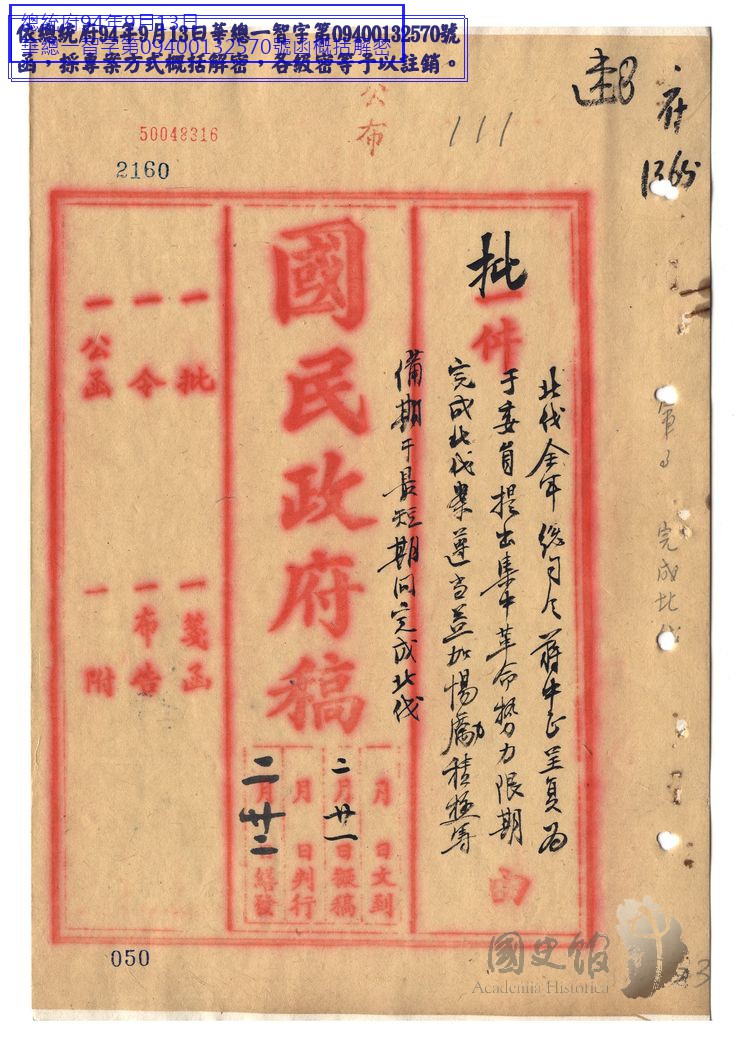 總統府94年9月13日
華總一智字第09400132570號函概括解密
依總統府94年9月13日華總一智字第09400132570號
函，採專案方式概括解密，各級密等予以註銷。
公布
111
50048316
2160
速
府
1365
批
一件
由
北伐全軍總司令蔣中正呈復為
于委員提出集中革命勢力限期
完成北伐案遵当益加惕勵積極籌
備期于最短期间完成北伐
國民政府稿
一月 日文到
二月廿一日擬稿
月 日判行
二月廿二繕發
一批
一令
一公函
一箋函
一布告
一附
軍事
完成北伐
050
國史館
Academia Historica